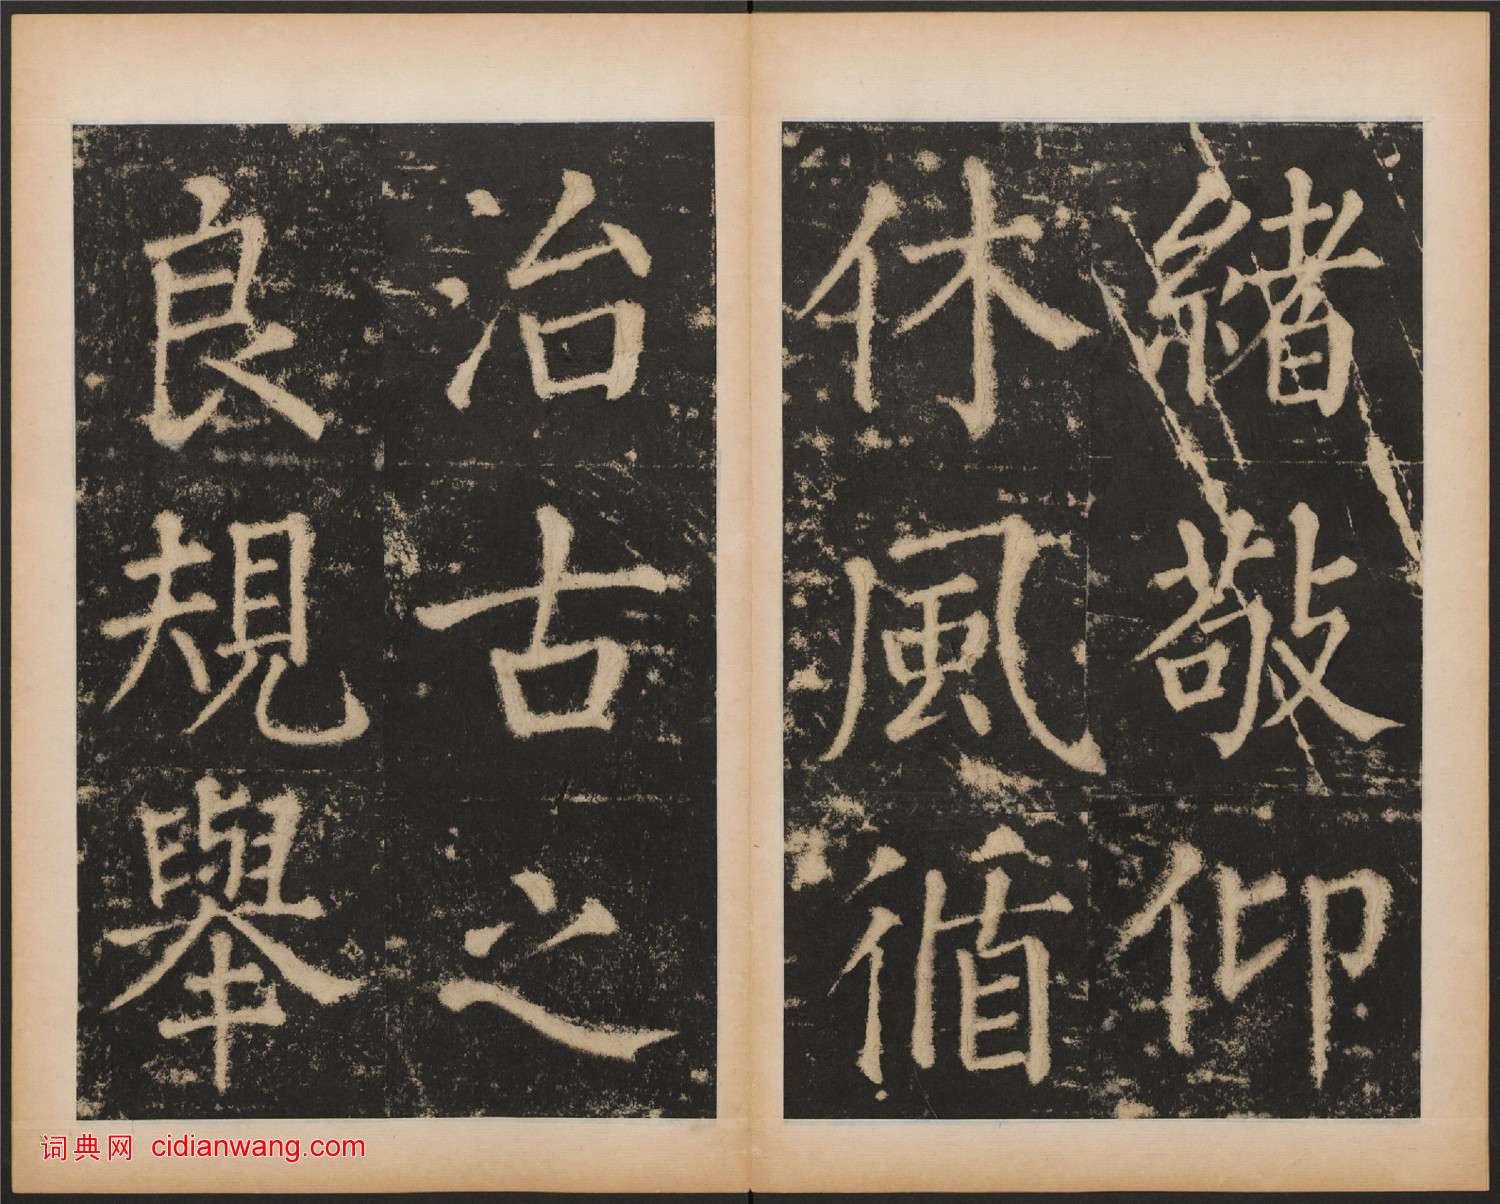 緒敬仰
休風循
治古之
良規舉
词典网 cidianwang.com